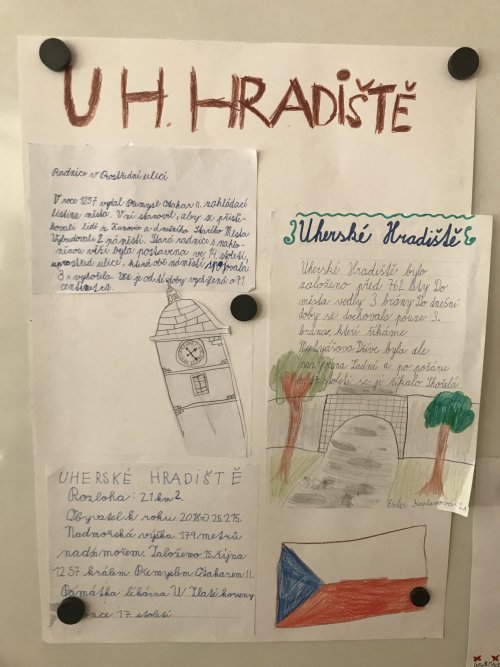 UH. HRADIŠTĚ
Radnice v Prostřední ulici
V roce 1257 vydal Přemysl Otakar II. zakládací
listinu města. V ní stanovil, aby se přistě-
hovali lidi z Kunovic a dnešního Starého Města
Vybudovali 2 náměstí. Stará radnice s nahlo-
něnou věží byla postavena ve 14 století,
uprostřed ulici, která obě náměstí spojovala.
3 x vyhořela. Věž je od té doby vychýlená o 71
centimetrů.
Uherské Hradiště
Uherské Hradiště bylo
založeno před 762 lety Do
města vedly 3 brány Do dnešní
doby se dochovala pouze 3.
brána, které říkáme
Matyášova Dříve byla ale
nazývána Zadní a po požáru
století se jí říkalo Shořelá
Ester Kaplanova 2.A
UHERSKÉ HRADIŠTĚ
Rozloha: 21 km2.
Obyvatel k roku 2018 25.215.
Nadmorská výška 179 metrů
nadm mořem. Založeno 15 října
1257 králem Přemyslem Otakarem II.
Památka: lékárna U Zlaté koruny
17 století